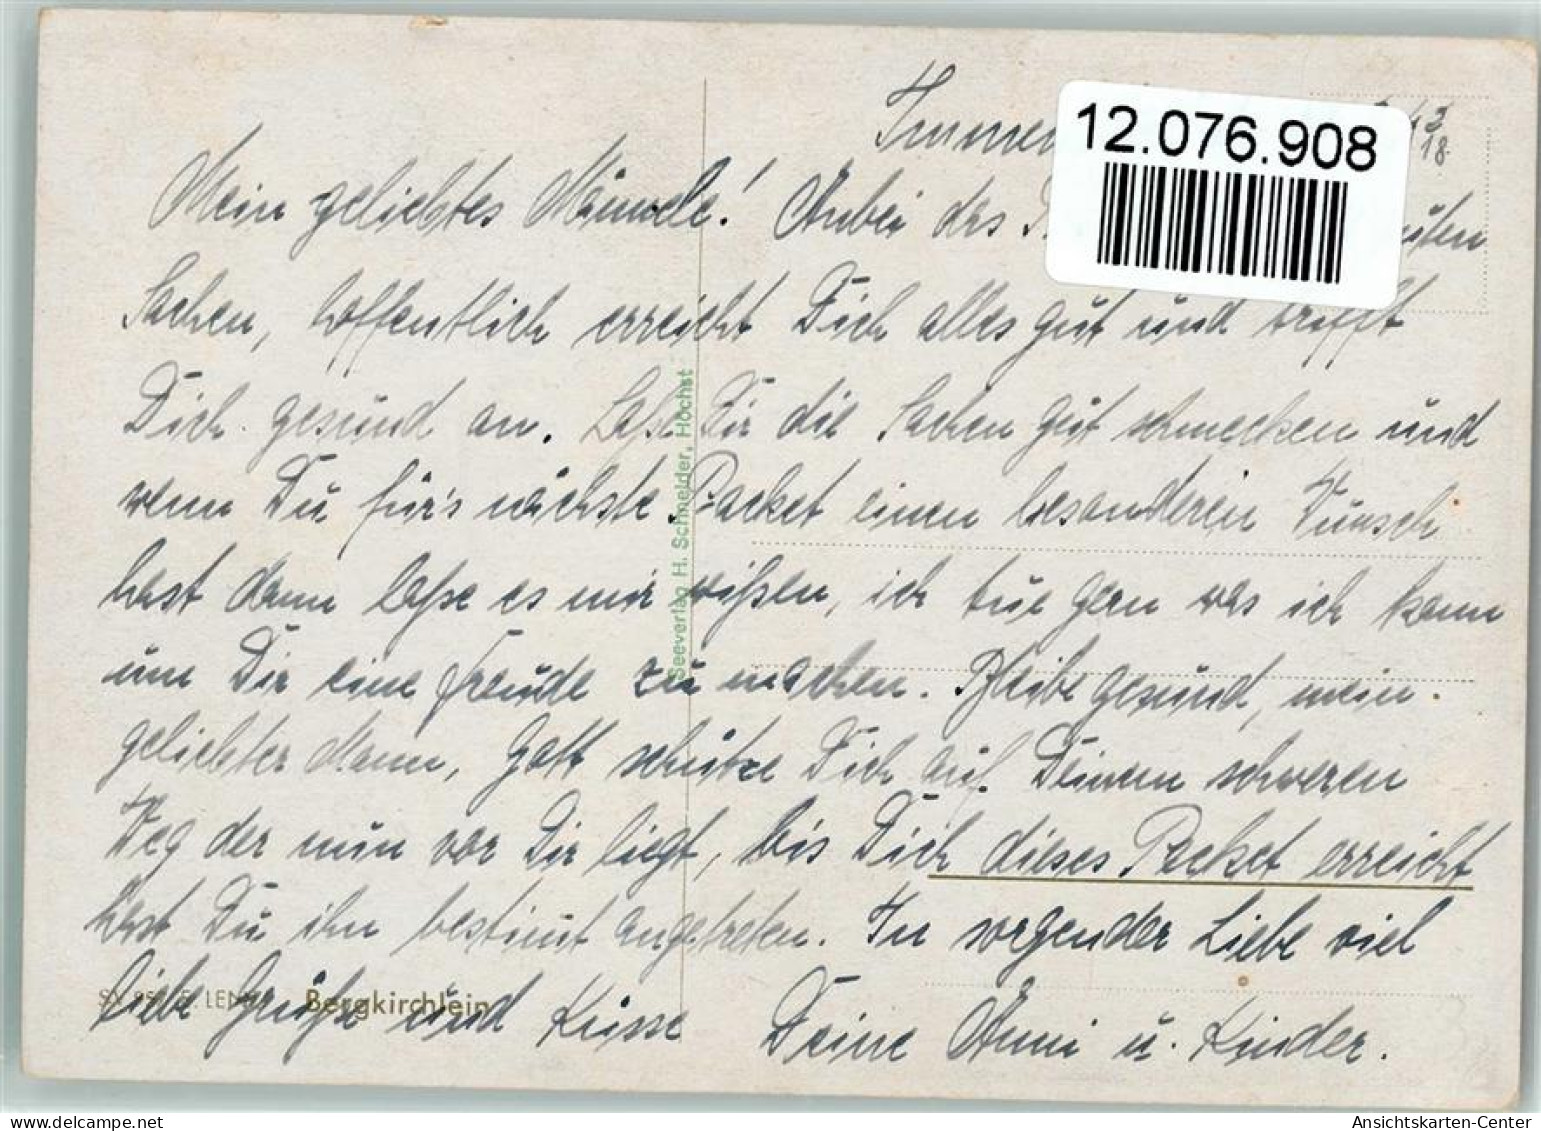 Immen
12.076.908
Mein geliebtes Männele! Anbei das
Sachen, hoffentlich erreicht Dich alles gut und trifft
Dich gesund an. Laße Dir die Sachen gut schmecken und
wenn Du für's nächste Packet einen besonderen Wunsch
hast dann laße es mir wißen, ich tue gern was ich kann
um Dir eine Freude zu machen. Bleibe gesund, mein
geliebter Mann, Gott schütze Dich auf Deinem schweren
Weg der nun vor Dir liegt, bis Dich dieses Packet erreicht
hast Du ihn bestimt angetreten. In sorgender Liebe viel
liebe Grüße und Küsse Deine Anni u. Kinder.
Bergkirchlein
Seeverlag H. Schneider, Höchst
Ansichtskarten-Center